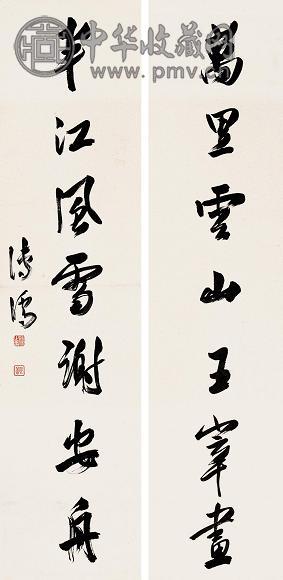 中华收藏网
www.pmv.cn
萬里雲山王宰畫
半江風雪謝安舟
溥儒